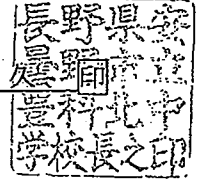 長野県安
曇野市立
豊科北中
学校長之印
久 印